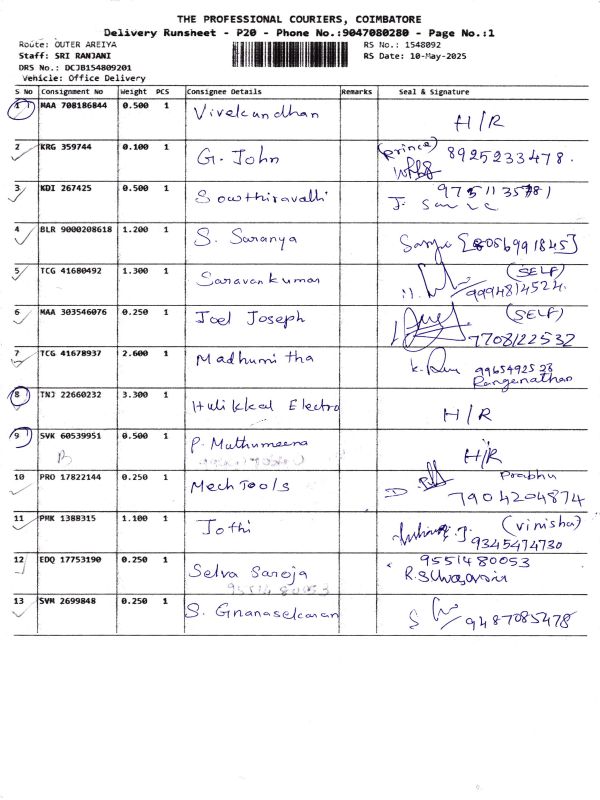 THE PROFESSIONAL COURIERS, COIMBATORE
Delivery Runsheet - P20 - Phone No.:9047080280 - Page No.:1
Route: OUTER AREIYA RS No.: 1548092
Staff: SRI RANJANI RS Date: 10-May-2025
DRS No.: DCJB154809201
Vehicle: Office Delivery
S No Consignment No Weight PCS Consignee Details Remarks Seal & Signature
1 MAA 708186844 0.500 1 Vivekandhan H/R
2 KRG 359744 0.100 1 G. John (Prince) 8925233478.
3 KDI 267425 0.500 1 Sowthiravalli
4 BLR 9000208618 1.200 1 S. Saranya [8056991845]
5 TCG 41680492 1.300 1 Saravankumar (SELF)
9994814524.
6 MAA 303546076 0.250 1 Joel Joseph (SELF)
7708122532
7 TCG 41678937 2.600 1 Madhumitha 9965492528
Rangenathan
8 TNJ 22660232 3.300 1 Hulikkal Electro H/R
9 SVK 60539951 0.500 1 P. Muthumeena H/R
B
10 PRO 17822144 0.250 1 Mech Tools Prabhu
7904204874
11 PMK 1388315 1.100 1 Jothi (Vinisha)
9345474730
12 EDQ 17753190 0.250 1 Selva Saroja 9551480053
9551480053
13 SVM 2699848 0.250 1 S. Gnanasekaran 9487085478